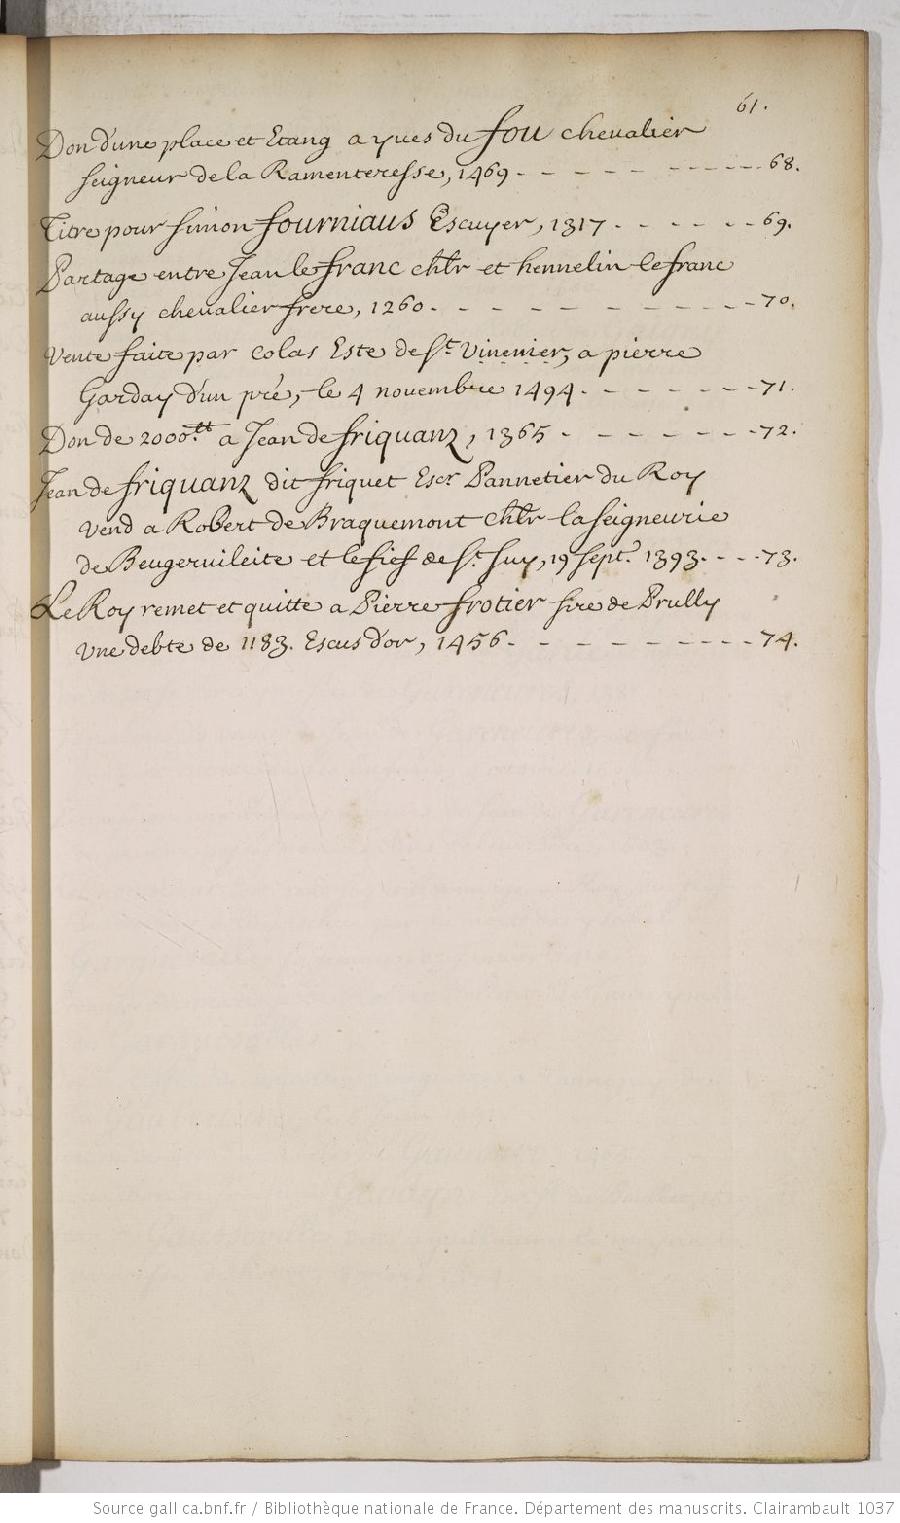 61.
Don d'une place et Etang a yves du fou chevalier
seigneur de la Ramenteresse, 1469 - - - - - - - - - - 68.
Titre pour simon fourniaus Escuyer, 1317 - - - - - - 69.
Partage entre Jean le franc chlr et hennelin le franc
aussy chevalier frere, 1260 - - - - - - - - - - 70.
Vente faite par Colas Este de St. Vinenier, a pierre
Garday d'un pré, le 4 novembre 1494 - - - - - - - 71.
Don de 2000.tt a Jean de friquanz, 1365 - - - - - - - 72.
Jean de friquanz dit friquet Escr. Pannetier du Roy
vend a Robert de Braquemont chlr la seigneurie
de et le fief de St. Suy, 19 sept. 1393 - - - - 73.
Le Roy remet et quitte a Pierre frotier sire de Prully
une debte de 1183. Escus d'or, 1456 - - - - - - - - - 74.
Source gallica.bnf.fr / Bibliothèque nationale de France. Département des manuscrits. Clairambault 1037